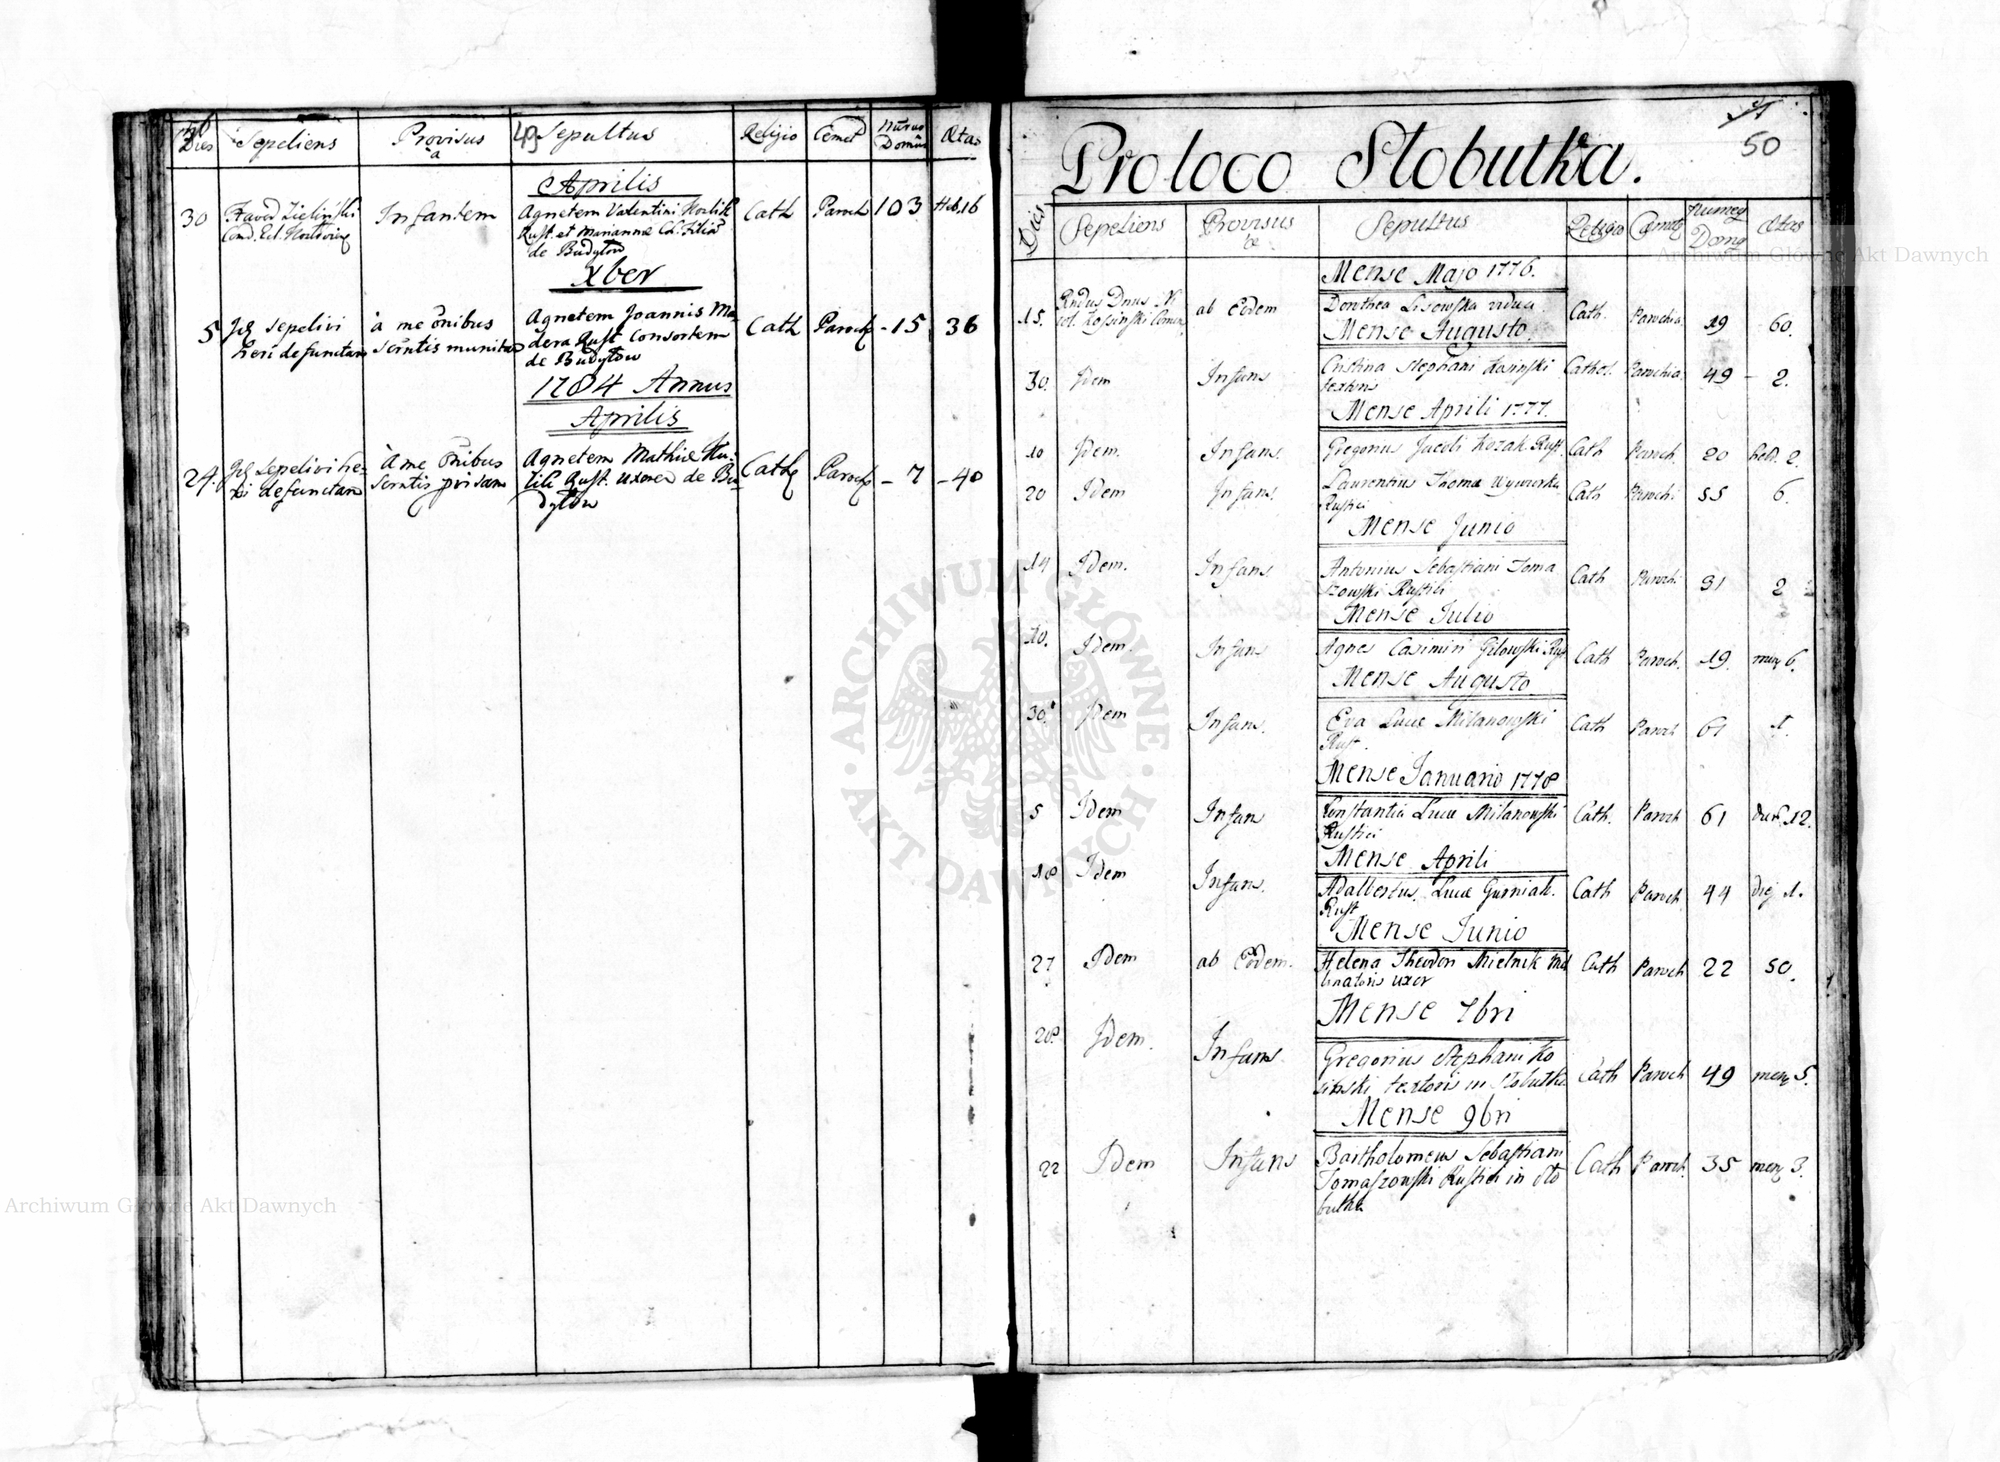 Dies Sepeliens Provisus a 49 Sepultus Religio Cemet Numus Domus Ætas
Aprilis
30 Infantem Agnetem Valentini Cath Paroch 103 Heb. 16
Rust. et Marianna Co. Filia
de Budytow
Xber
5 Ips Sepelivi à me oñibus Agnetem Joannis Ma- Cath Paroch - 15 36
heri defunctam scrntis munitam dera Rust Consortem
de Budytow
1784 Annus
Aprilis
24. Ips Sepelivi he- à me oñibus Agnetem Mathiæ Ku- Cath Paroch - 7 - 40
ri defunctam scrntis provisam lik Rust. uxorem de Bu-
dytow
50
Pro loco Stobutka.
Dies Sepeliens Provisus Sepultus Religio Numeg Domg Ætas
Mense Majo 1776.
15. Rndus Dnus ab Eodem Dorothea Lisowska vidua Cath. Parochia. 19 60.
Mense Augusto.
30. Idem Infans Cristina Stephani Kosinski Cathol. Parochia. 49 - 2.
textoris
Mense Aprili 1777.
10 Idem. Infans. Gregorius Jacobi Kozak Rust. Cath Paroch. 20 heb. 2.
20 Idem Infans. Laurentius Thomæ Cath Parochi 55 6.
Rustici
Mense Junio
14 Idem. Infans. Antonius Sebastiani Toma Cath Paroch. 31 2
szowski Rustici
Mense Julio
10. Idem. Infans Agnes Casimiri Gilowski Rust. Cath Paroch. 19. 6.
Mense Augusto
30. Idem Infans. Eva Lucæ Milanowski Cath Paroch 61 1.
Rust.
Mense Januario 1778
5 Idem Infans Constantia Lucæ Milanowski Cath. Paroch 61 12.
Rustici
Mense Aprili
18 Idem Infans. Adalbertus Lucæ Gurniak. Cath Paroch. 44 1.
Rust
Mense Junio
27 Idem ab Eodem. Helena Theodori Mielnik Mol Cath Paroch 22 50.
linatoris uxor
Mense 7bri
28 Idem. Infans Gregorius Stephani Ko Cath Paroch 49 meng 5.
sinski textoris in Stobutka
Mense 9bri
22 Idem Infans Bartholomeus Sebastiani Cath Paroch. 35 meng 3.
Tomaszowski Rustici in Sto
butka
ARCHIWUM GŁÓWNE AKT DAWNYCH
Archiwum Główne Akt Dawnych
Archiwum Główne Akt Dawnych